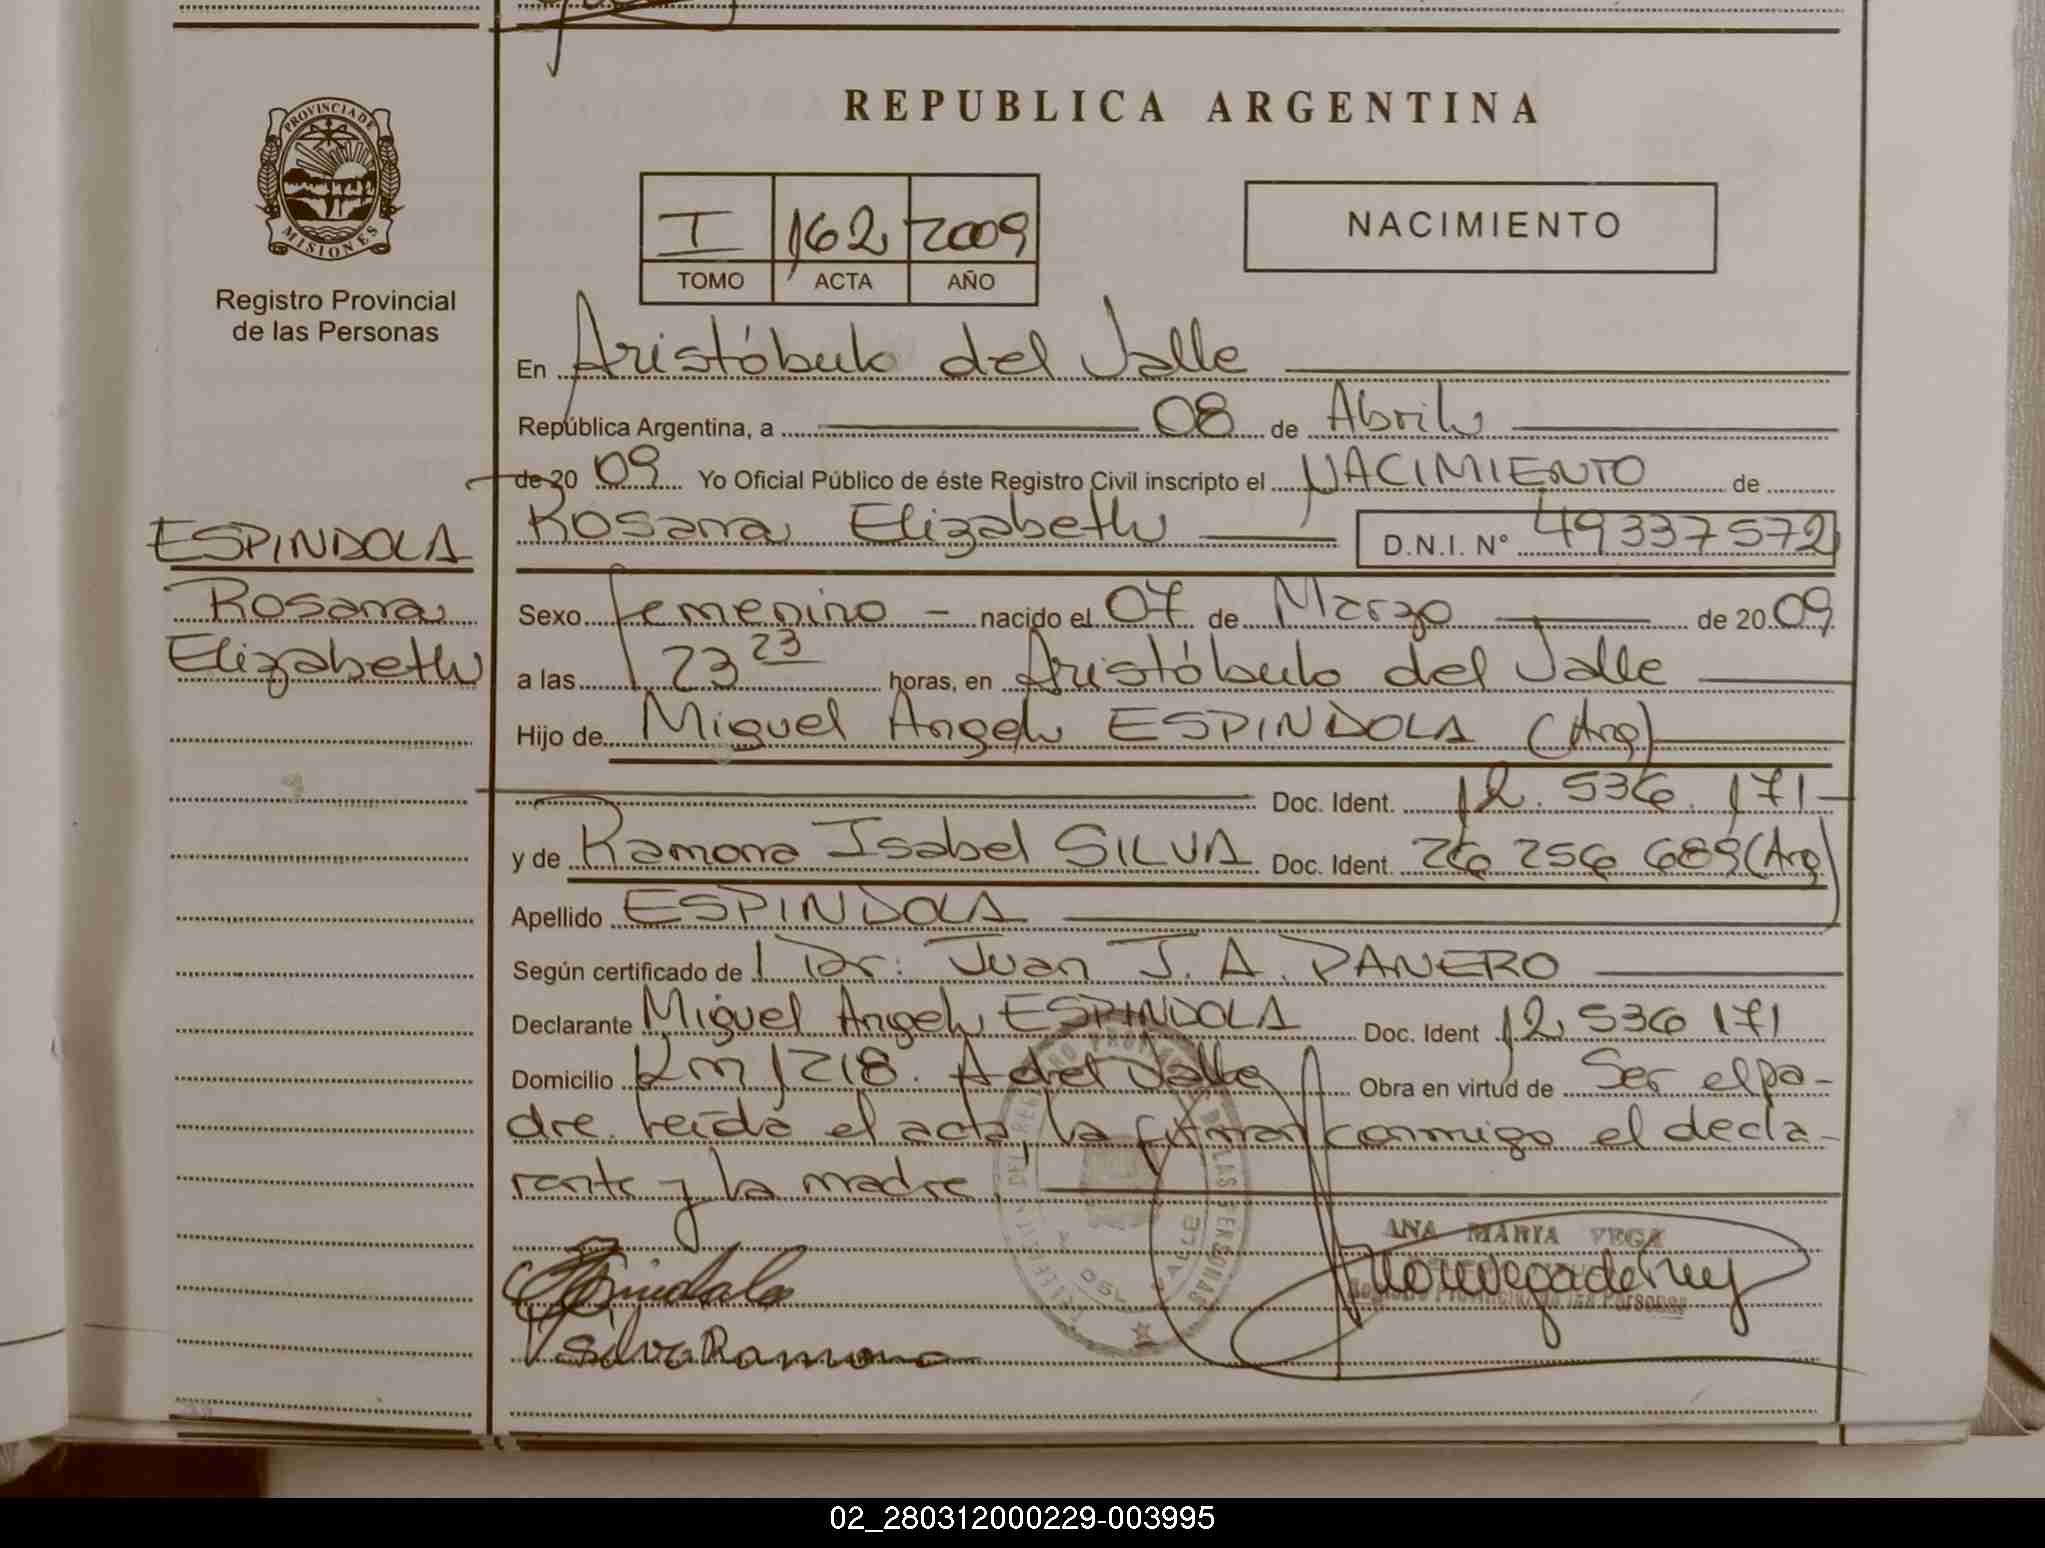 REPUBLICA ARGENTINA
PROVINCIA DE
MISIONES
Registro Provincial
de las Personas
I 162 2009
TOMO ACTA AÑO
NACIMIENTO
En Aristóbulo del Valle
República Argentina, a 08 de Abril
de 20 09 Yo Oficial Público de éste Registro Civil inscripto el NACIMIENTO de
Rosana Elizabeth D.N.I. N° 49337572
ESPINDOLA
Rosana
Elizabeth
Sexo femenino - nacido el 07 de Marzo de 20 09
a las 23 23 horas, en Aristóbulo del Valle
Hijo de Miguel Angel ESPINDOLA (Arg)
Doc. Ident. 12.536.171
y de Ramona Isabel SILVA Doc. Ident. 26 256 689 (Arg)
Apellido ESPINDOLA
Según certificado de Dr. Juan J. A. PANERO
Declarante Miguel Angel ESPINDOLA Doc. Ident 12 536 171
Domicilio Km 1218. A del Valle Obra en virtud de Ser el pa-
dre. Leída el acta, la firman conmigo el decla-
rante y la madre
ANA MARIA VEGA
Registro Provincial de las Personas
Espindola
Silva Ramona
02_280312000229-003995